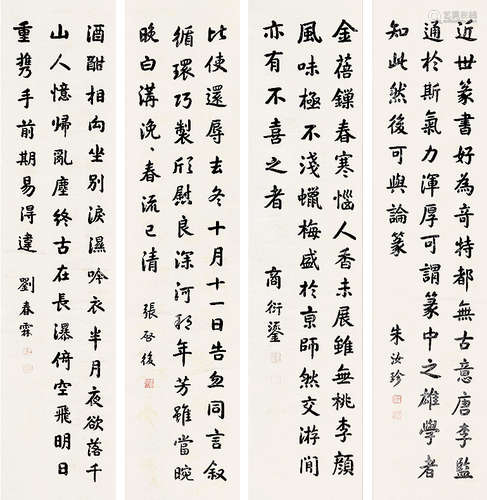 近世篆書好為奇特都無古意唐李監
通於斯氣力渾厚可謂篆中之雄學者
知此然後可與論篆
朱汝珍
金蓓鏁春寒惱人香未展雖無桃李顏
風味極不淺蠟梅盛於京師然交游間
亦有不喜之者
商衍鎏
比使還辱去冬十月十一日告匆同言叙
循環巧製欣慰良深河邨年芳雖當晼
晚白溝浼浼春流已清
張啓後
酒酣相向坐別淚濕吟衣半月夜欲落千
山人憶歸亂塵終古在長瀑倚空飛明日
重携手前期易得違
劉春霖